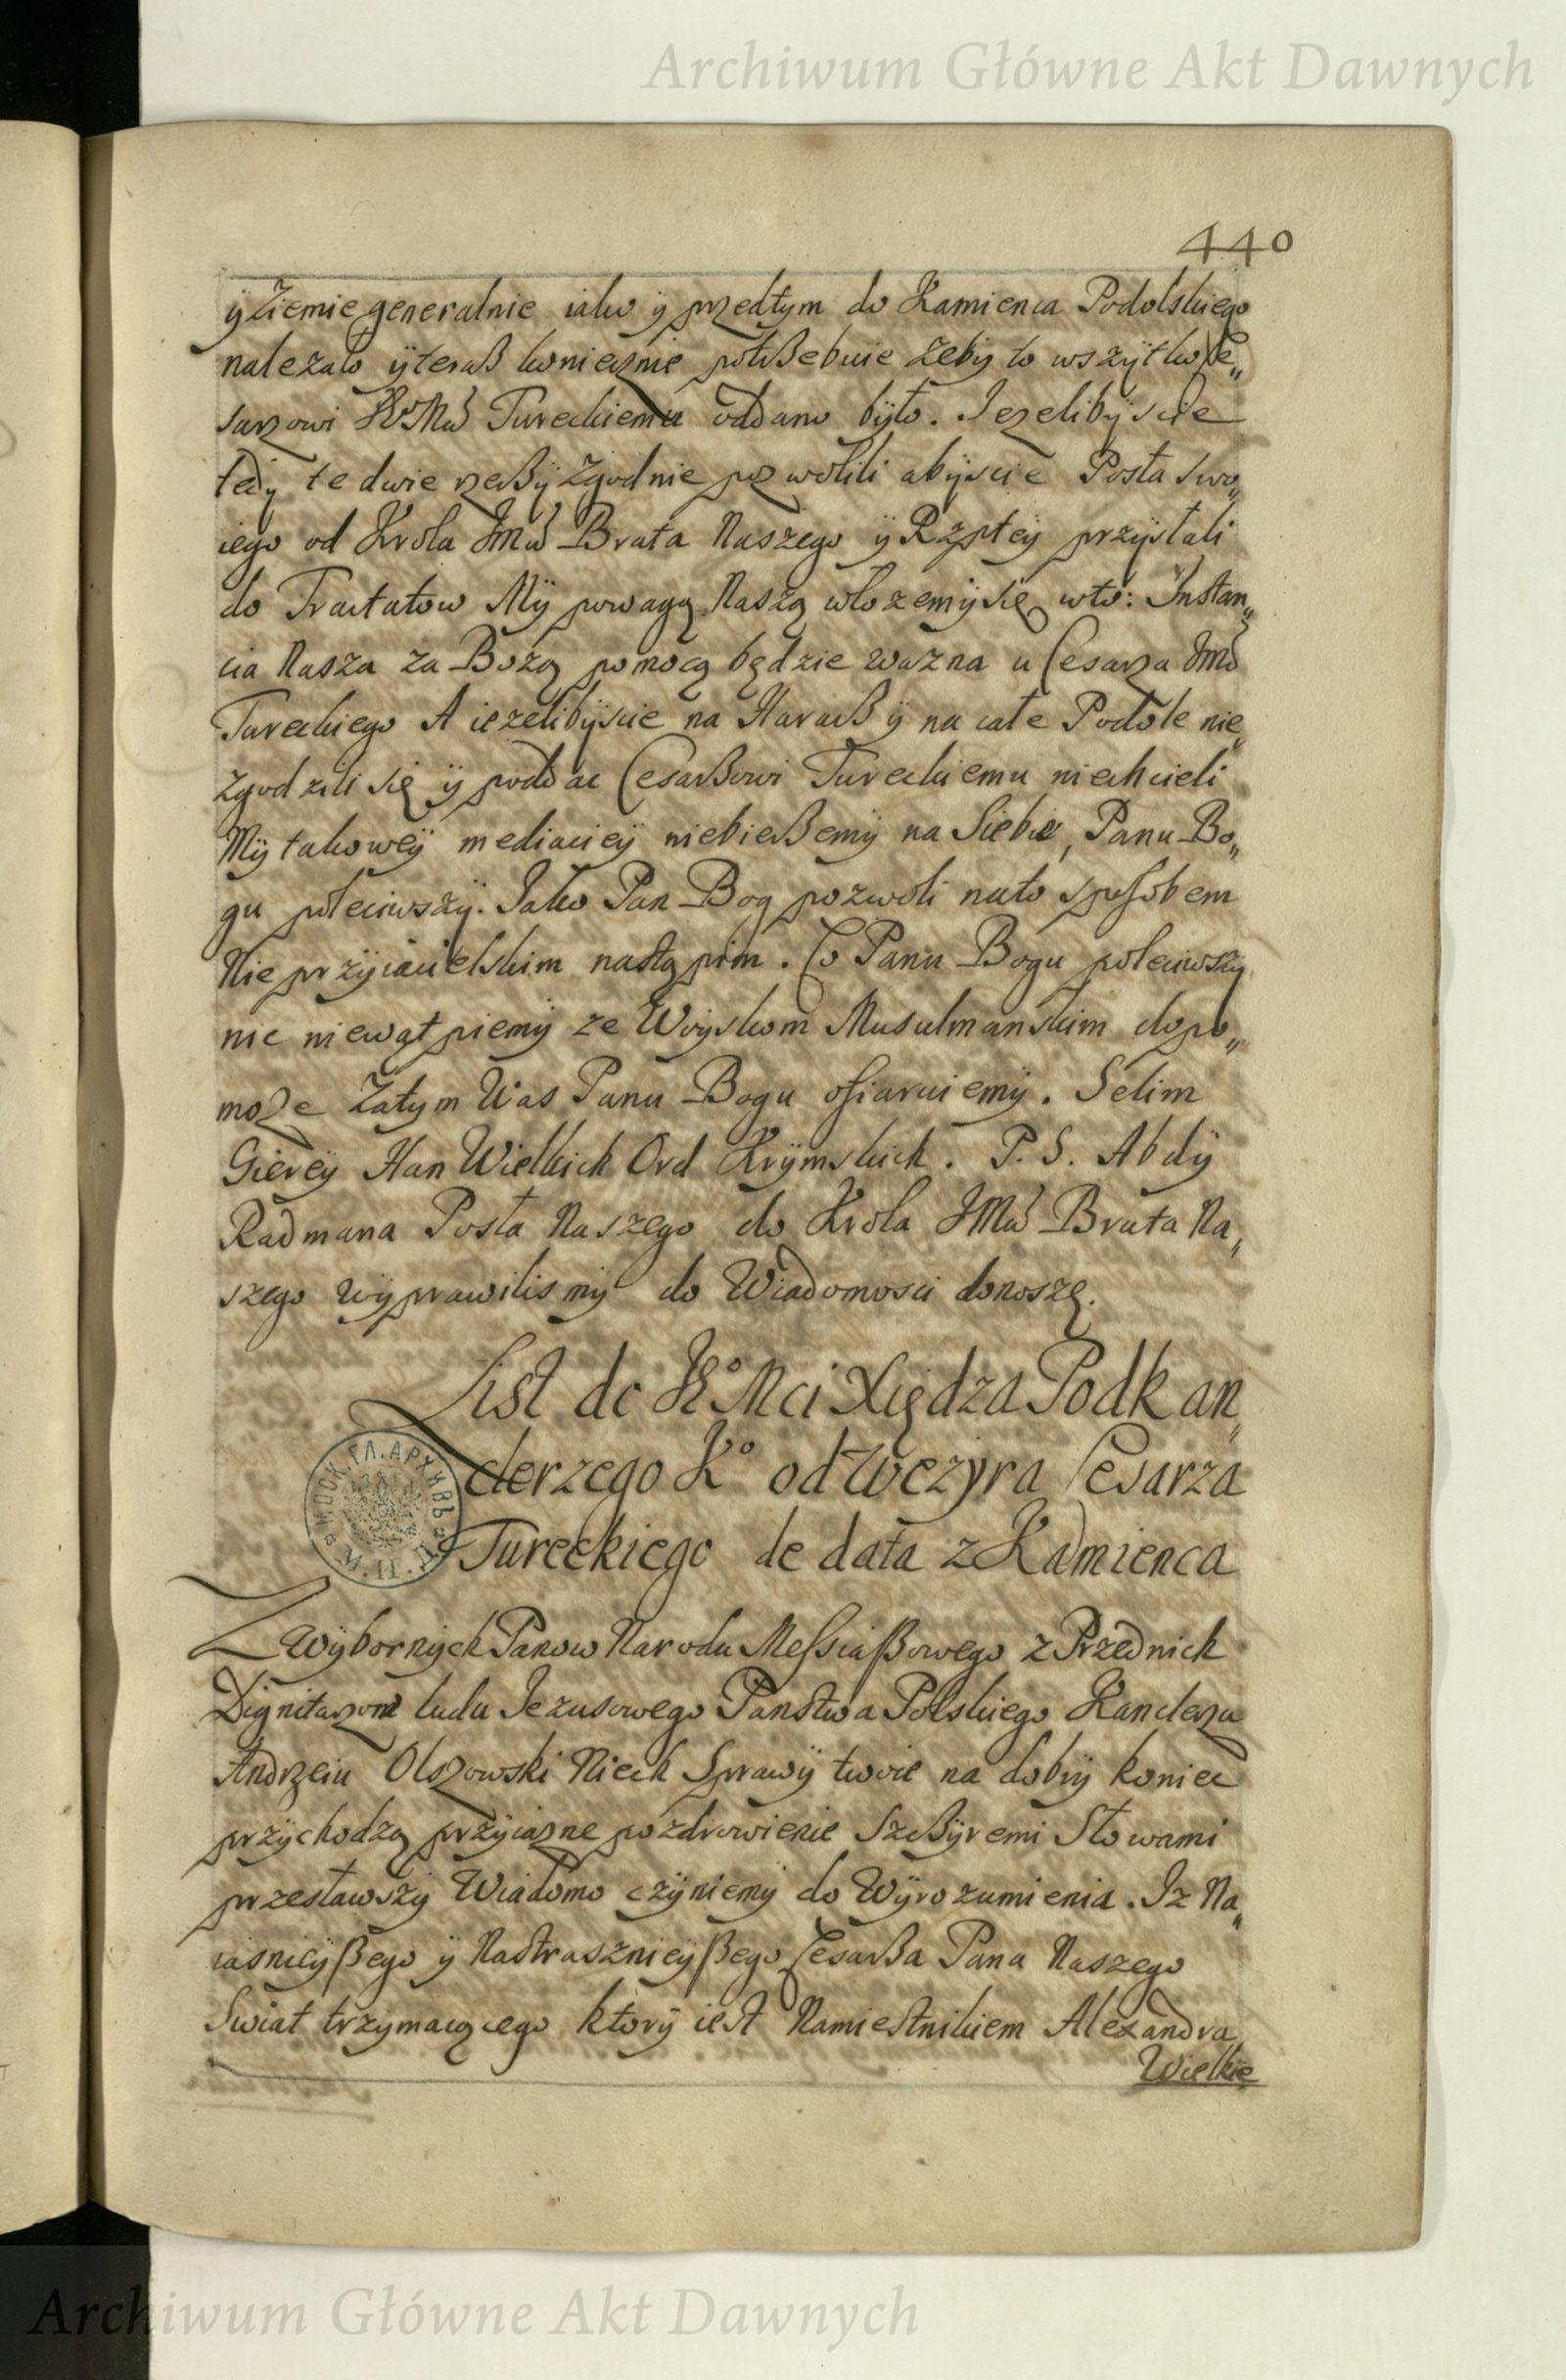 Archiwum Główne Akt Dawnych
440
ÿ Ziemie generalnie iako ÿ przedtym do Kamienca Podolskiego
nalezało ÿ teraß koniecznie potrßebuie zebÿ to wszÿtko Ce„
sarzowi JeoMci Tureckiemu oddano bÿło. Iezelibÿscie
tedÿ te dwie rzeßÿ zgodnie pozwolili abÿscie Posła swo„
iego od Krola JMci Brata Naszego ÿ Rzptey przÿsłali
do Tractatow Mÿ powagą Naszą włozemÿ się wto: Instan„
cia Nasza za Bożą pomocą będzie wazna u Cesarza JMci
Tureckiego A iezelibÿscie na Haraß ÿ na całe Podole nie„
zgodzili się ÿ poddac Cesarßowi Tureckiemu niechcieli
Mÿ takoweÿ mediacieÿ niebießemÿ na Siebie, Panu Bo„
gu poleciwszÿ. Iako Pan Bog pozwoli nato sposobem
Nieprzÿiacielskim nastąpim. Co Panu Bogu poleciwszÿ
nic niewątpiemÿ ze Woÿskom Musulmanskim dopo„
moze Zatym Was Panu Bogu ofiaruiemÿ. Selim
Giereÿ Han Wielkich Ord Krÿmskich. P. S. Abdÿ
Radmana Posła Naszego do Krola JMci Brata Na„
szego wÿprawilismÿ do Wiadomosci donoszę.
List do Jeo Mci Xiędza Podkan„
clerzego Ko od Wezyra Cesarza
Tureckiego de data z Kamienca
МОСК. ГЛ. АРХИВЪ М. И. Д.
Z Wÿbornÿch Panow Narodu Messiaßowego z Przednich
Dignitarzow ludu Iezusowego Panstwa Polskiego Kanclerzu
Andrzeiu Olszowski Niech Sprawÿ twoie na dobrÿ koniec
przÿchodzą przÿiazne pozdrowienie Szcßÿremi Słowami
przesławszÿ Wiadomo czÿniemÿ do Wÿrozumienia. Iz Na„
iasnieÿßego ÿ Nastraszniejßego Cesarßa Pana Naszego
Swiat trzymaiącego, ktorÿ iest Namiestnikiem Alexandra
Wielkie
Archiwum Główne Akt Dawnych